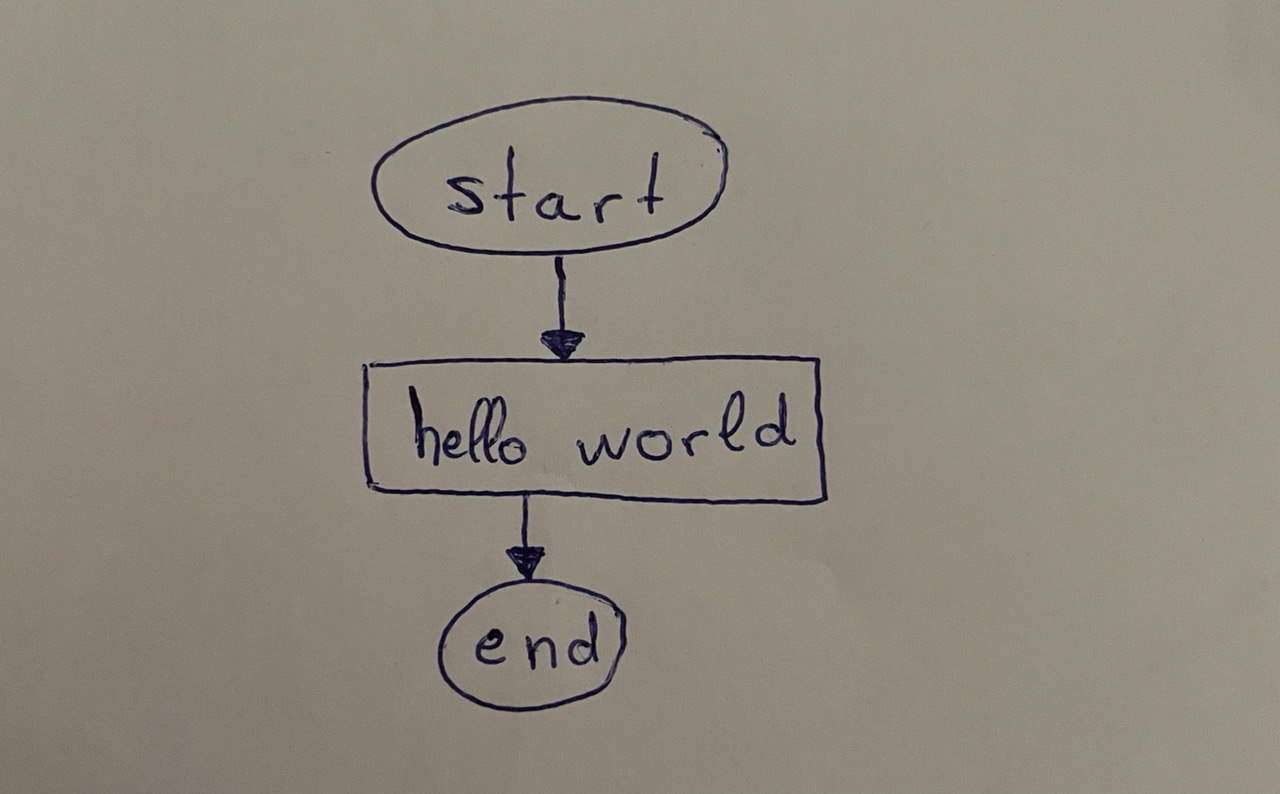 start
hello world
end